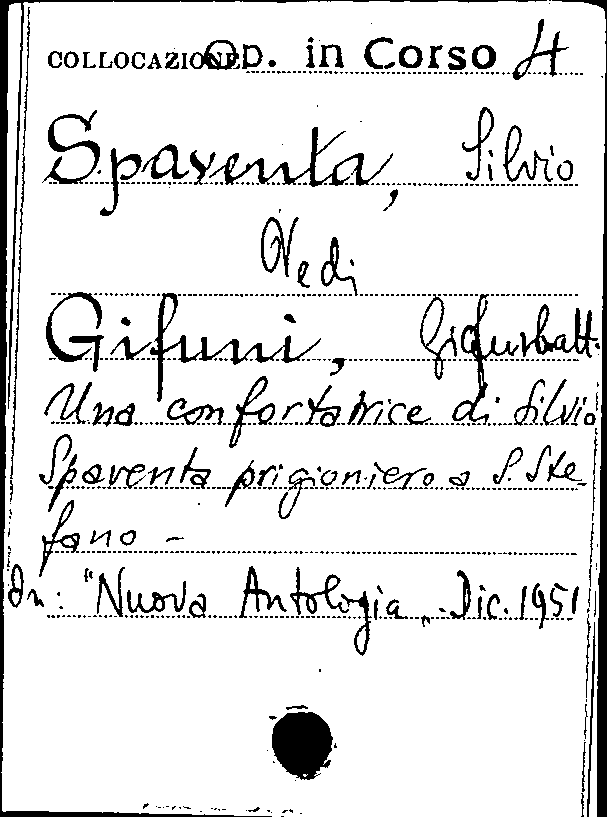 COLLOCAZIONE Op. in Corso 4
Spaventa, Silvio
Vedi
Gifuni, Giambatt.
Una confortatrice di Silvio
Spaventa prigioniero a S. Ste
fano -
In: "Nuova Antologia„. Dic. 1951